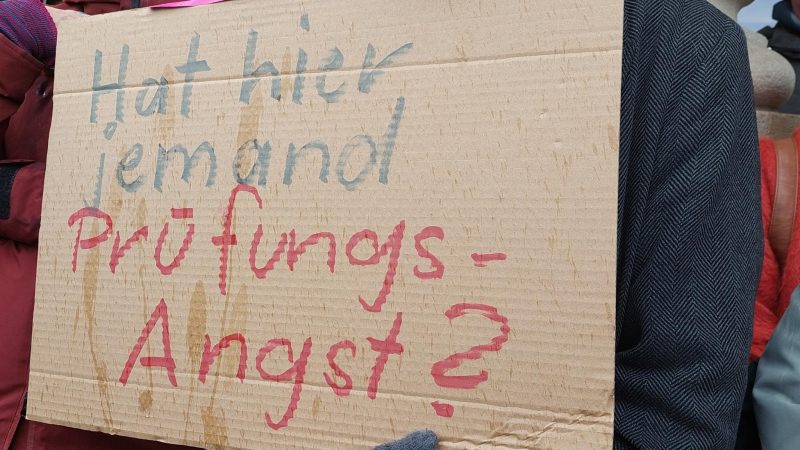 Hat hier
jemand
Prüfungs-
Angst?